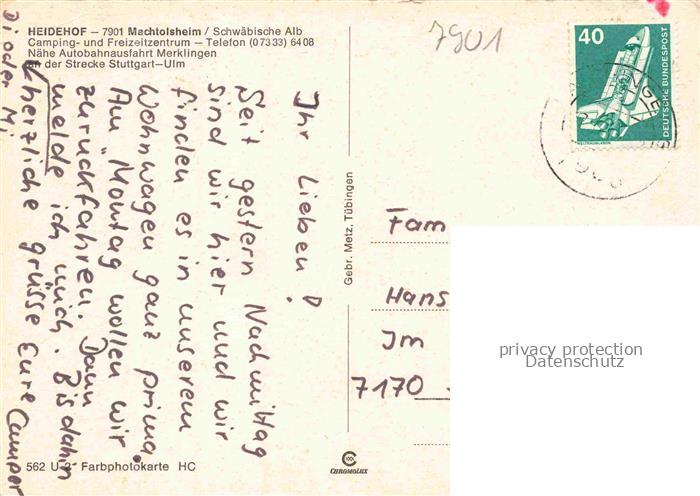 HEIDEHOF – 7901 Machtolsheim / Schwäbische Alb
Camping- und Freizeitzentrum – Telefon (07333) 6408
Nähe Autobahnausfahrt Merklingen
an der Strecke Stuttgart–Ulm
7901
40
DEUTSCHE BUNDESPOST
WELTRAUMLABOR
Ihr Lieben!
Seit gestern Nachmittag
sind wir hier und wir
finden es in unserem
Wohnwagen ganz prima.
Am Montag wollen wir
zurückfahren. Dann
melde ich mich. Bis dahin
herzliche grüsse Eure Camper
Di oder Mi
Gebr. Metz, Tübingen
Fam
Hans
Im
7170
privacy protection
Datenschutz
562 U 3 Farbphotokarte HC
CHROMOLUX